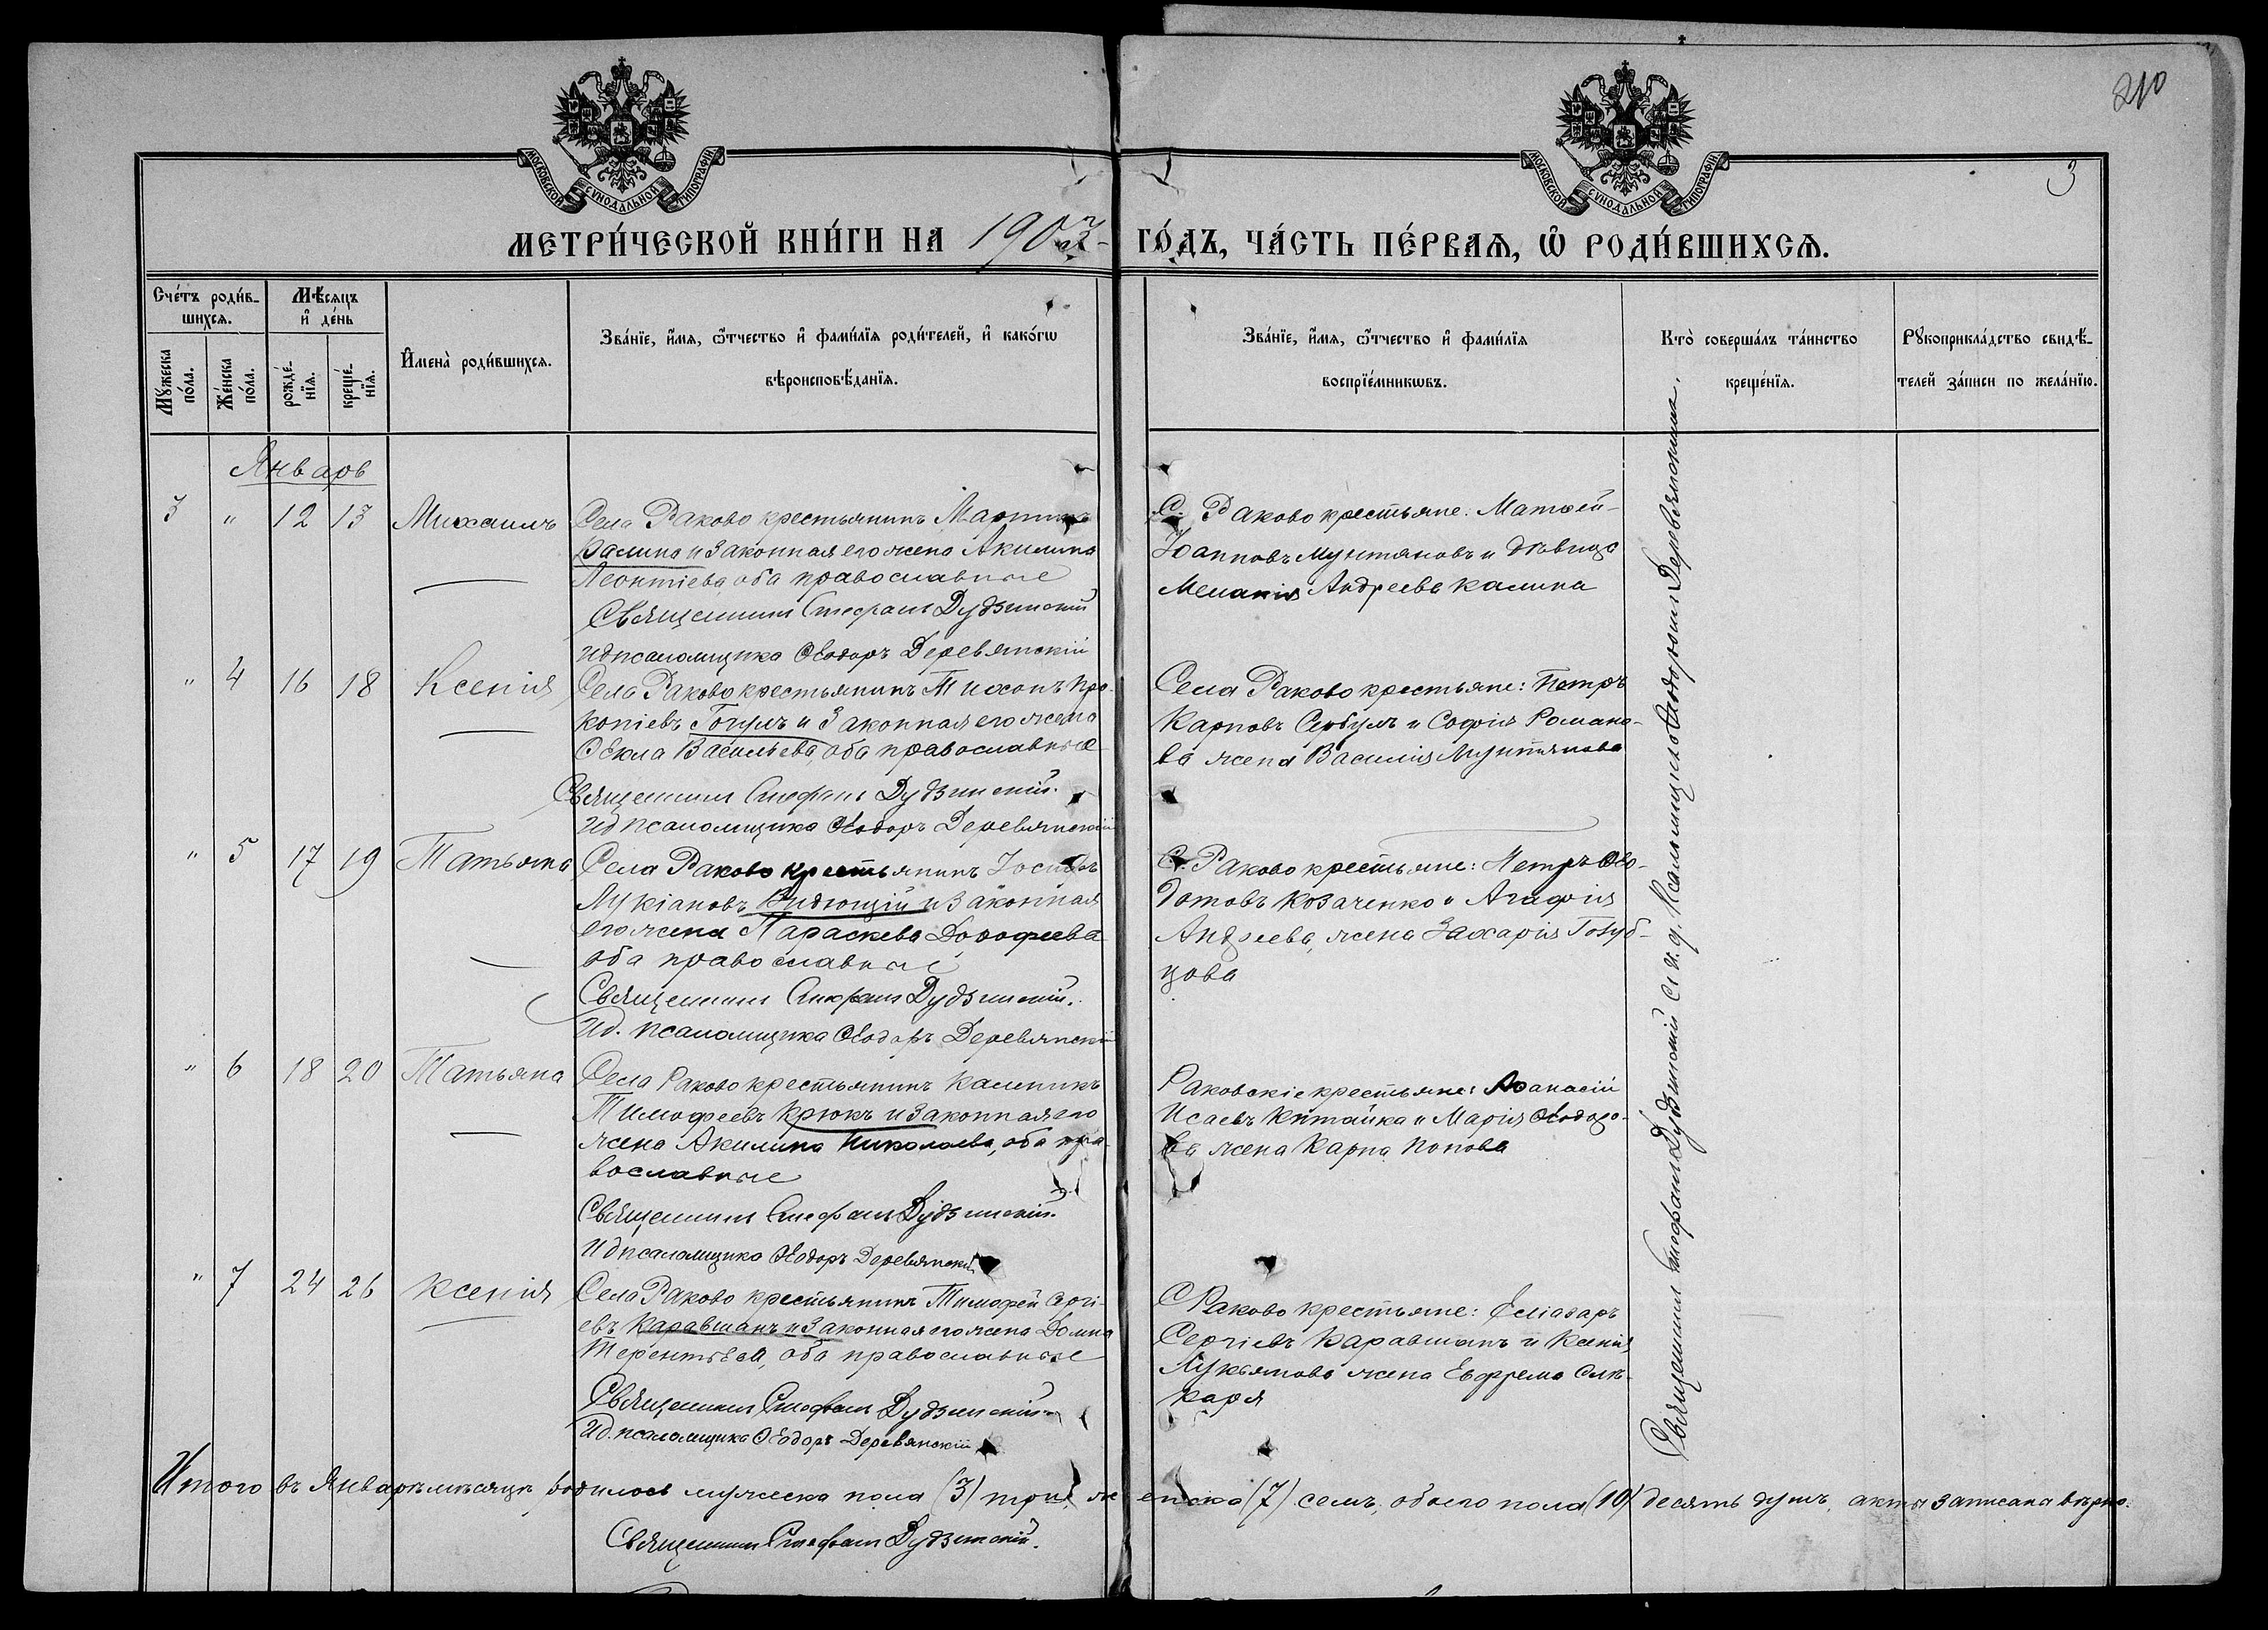 210
3
МОСКОВСКОЙ СѴНОДАЛЬНОЙ ТИПОГРАФІИ
МОСКОВСКОЙ СѴНОДАЛЬНОЙ ТИПОГРАФІИ
МЕТРИ́ЧЕСКОЙ КНИ́ГИ НА 190 ГО́ДЪ, ЧА́СТЬ ПЕ́РВАѦ, Ѡ҆ РОДИ́ВШИХСѦ.
Сче́тъ роди́в-
шихсѧ.
Мꙋ́жеска
по́ла.
Же́нска
по́ла.
Мѣ́сѧцъ
и҆ де́нь
рожде́-
нїѧ.
креще́-
нїѧ.
И҆мена̀ роди́вшихсѧ.
Зва́нїе, и҆́мѧ, ѻ҆́тчество и҆ фами́лїѧ роди́телей, и҆ како́гѡ
вѣроисповѣ́данїѧ.
Зва́нїе, и҆́мѧ, ѻ҆́тчество и҆ фами́лїѧ
воспрїе́мникѡвъ.
Кто̀ соверша́лъ та́инство
креще́нїѧ.
Рꙋкоприкла́дство свидѣ́-
телей за́писи по жела́нїю.
Январь
3 " 12 13 Михаилъ
Села Раково крестьянинъ Мартинъ
Калина и законная его жена Акилина
Леонтіева, оба православные
Священникъ Стефанъ Дудзинскій
Ид псаломщика Ѳеодоръ Деревянскій
С. Раково крестьяне: Матѳей
Іоанновъ Мунтяновъ и дѣвица
Меланія Андреева Калина
" 4 16 18 Ксенія
Села Раково крестьянинъ Тихонъ Про-
копіевъ и законная его жена
Ѳекла Васильева, оба православные
Священникъ Стефанъ Дудзинскій.
Ид псаломщика Ѳеодоръ Деревянскій
Села Раково крестьяне: Петръ
Карповъ Сербулъ и Софія Романо-
ва жена Василія Мунтянова
" 5 17 19 Татьяна
Села Раково крестьянинъ Іосифъ
Лукіановъ и законная
его жена Параскева Дорофеева
оба православные
Священникъ Стефанъ Дудзинскій.
Ид. псаломщика Ѳеодоръ Деревянскій
С. Раково крестьяне: Петръ Ѳео-
дотовъ Козаченко и Агафія
Андреева, жена Захарія Голуб-
цова
" 6 18 20 Татьяна
Села Раково крестьянинъ Калинникъ
Тимофеевъ Крюкъ и законная его
жена Акилина Николаева, оба пра-
вославные
Священникъ Стефанъ Дудзинскій.
Ид псаломщика Ѳеодоръ Деревянскій
Раковскіе крестьяне: Аѳанасій
Исаевъ Китайка и Марія Ѳеодоро-
ва жена Карпа Попова
" 7 24 26 Ксенія
Села Раково крестьянинъ Тимофей Сергі-
евъ Каравманъ и законная его жена Домна
Терентьева, оба православные
Священникъ Стефанъ Дудзинскій.
Ид. псаломщика Ѳеодоръ Деревянскій
С Раково крестьяне: Еліазаръ
Сергіевъ Каравманъ и Ксенія
Лукьянова жена Ефрема
Священникъ Стефанъ Дудзинскій съ и. д. Псаломщика Ѳеодоромъ Деревянскимъ.
Итого въ Январѣ мѣсяцѣ родилось мужеска пола (3) три, женска (7) семь, обоего пола (10) десять душъ. акты записана вѣрно.
Священникъ Стефанъ Дудзинскій.